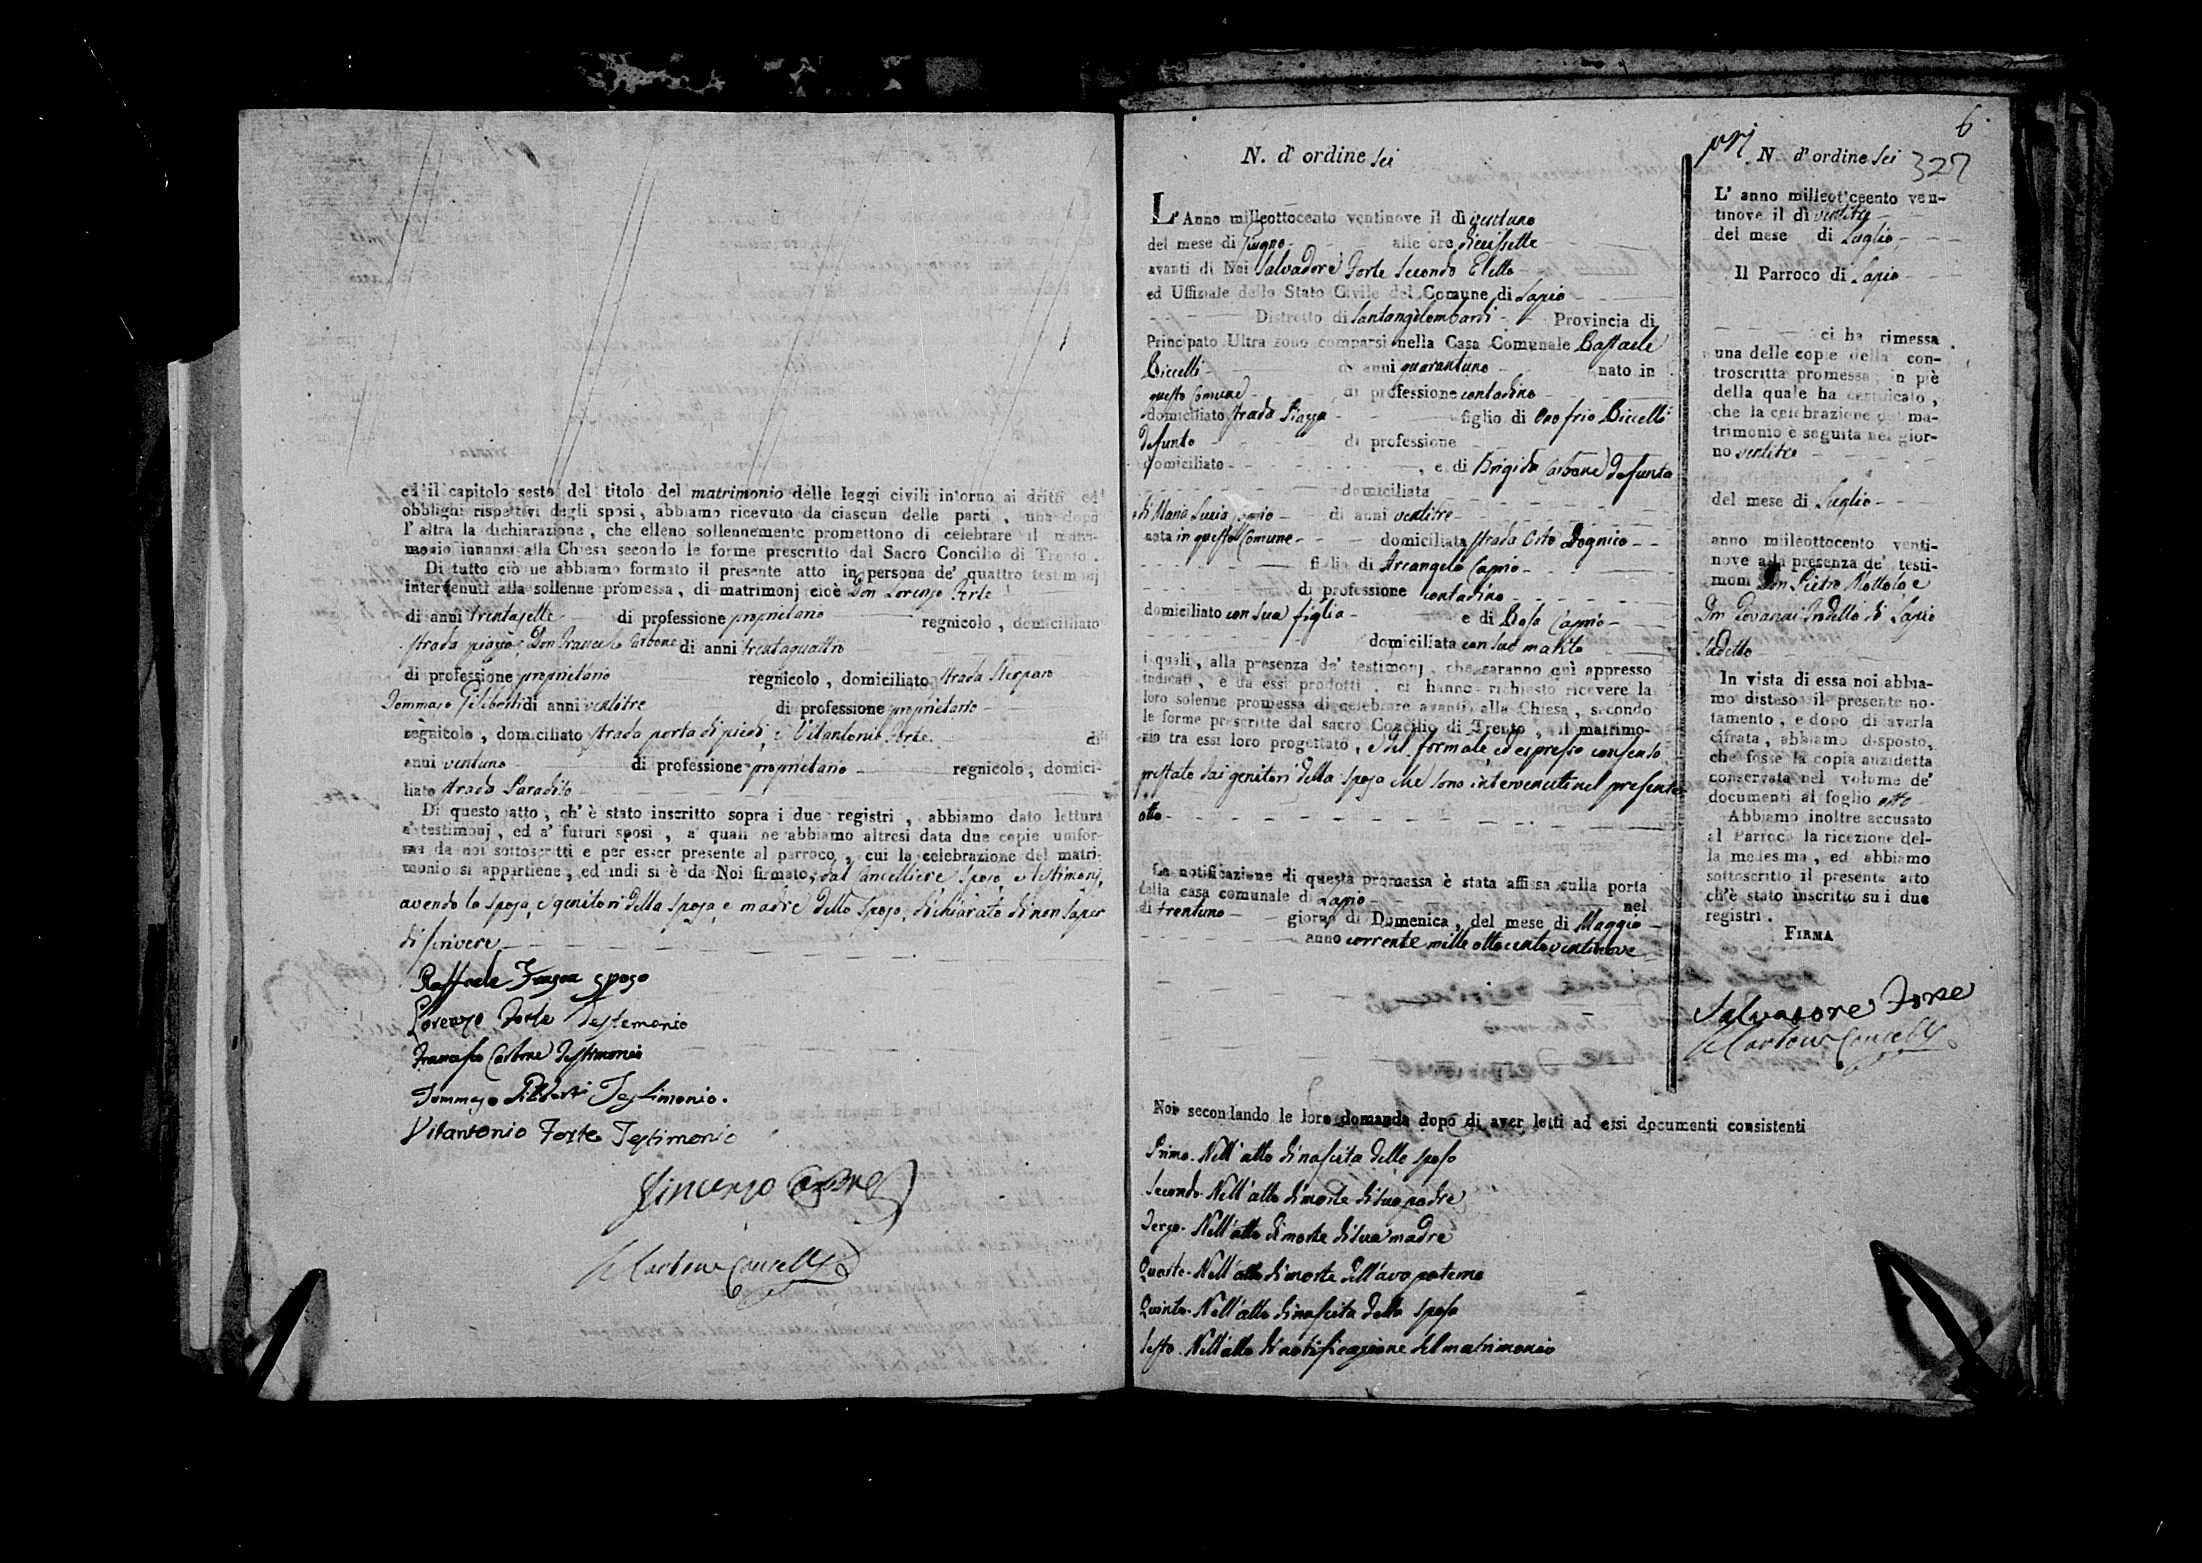 ed il capitolo sesto del titolo del matrimonio delle leggi civili intorno ai dritti ed
obblighi rispettivi degli sposi, abbiamo ricevuto da ciascun delle parti, una dopo
l'altra la dichiarazione, che elleno sollennemente promettono di celebrare il matri-
monio innanzi alla Chiesa secondo le forme prescritto dal Sacro Concilio di Trento.
Di tutto ciò ne abbiamo formato il presente atto in persona de' quattro testimonj
intervenuti alla sollenne promessa, di matrimonj cioè Don Lorenzo Forte
di anni trentasette di professione proprietario regnicolo, domiciliato
strada piazza, Don Francesco Carbone di anni trentaquattro
di professione proprietario regnicolo, domiciliato strada
Tommaso Piliberti di anni ventitre di professione proprietario
regnicolo, domiciliato strada porta di piedi, e Vitantonio Forte di
anni ventuno di professione proprietario regnicolo, domici-
liato strada Paradiso
Di questo atto, ch' è stato inscritto sopra i due registri, abbiamo dato lettura
a' testimonj, ed a' futuri sposi, a' quali ne abbiamo altresì data due copie unifor-
ma da noi sottoscritti e per esser presente al parroco, cui la celebrazione del matri-
monio si appartiene, ed indi si è da Noi firmato, dal Cancelliere sposo e testimonj,
avendo la sposa, e genitori della sposa, e madre dello sposo, dichiarato di non saper
di scrivere
Raffaele sposo
Lorenzo Forte Testemonio
Francesco Carbone Testimonio
Tommaso Piliberti Testimonio.
Vitantonio Forte Testimonio
Vincenzo Carbone
Carbone Cancelle
6
N. d' ordine sei
L' Anno milleottocento ventinove il dì ventuno
del mese di Giugno alle ore diecissette
avanti di Noi Salvadore Forte Secondo Eletto
ed Uffiziale dello Stato Civile del Comune di Lapio
Distretto di Santangelolombardi Provincia di
Principato Ultra sono comparsi nella Casa Comunale Raffaele
Biccelli di anni quarantuno nato in
questo Comune di professione contadino
domiciliato strada Piazza figlio di Onofrio Biccelli
defunto di professione
domiciliato , e di Brigida Carbone defunta
domiciliata
di Maria Lucia Caprio di anni ventitre
nata in questo Comune domiciliata strada Orto Dognico
figlia di Arcangelo Caprio
di professione contadino
domiciliato con sua figlia e di Rosa Caprio
domiciliata con suo marito
i quali, alla presenza de' testimonj, che saranno quì appresso
indicati, e da essi prodotti, ci hanno richiesto ricevere la
loro solenne promessa di celebrare avanti alla Chiesa, secondo
le forme prescritte dal sacro Concilio di Trento, il matrimo-
nio tra essi loro progettato, del formale, ed espresso consenso
prestato dai genitori della sposa che sono intervenuti nel presente
atto
La notificazione di questa promessa è stata affissa sulla porta
della casa comunale di Lapio nel
di trentuno giorno di Domenica, del mese di Maggio
anno corrente mille ottocento ventinove
Noi secondando le loro domanda dopo di aver letti ad essi documenti consistenti
Primo. Nell' atto di nascita dello sposo
Secondo. Nell' atto di morte di suo padre
Terzo. Nell' atto di morte di sua madre
Quarto. Nell' atto di morte dell' avo paterno
Quinto. Nell' atto di nascita della sposa
Sesto. Nell' atto di notificazione del matrimonio
N. d' ordine sei 327
L' anno milleottocento ven-
tinove il dì ventitre
del mese di Luglio
Il Parroco di Lapio
ci ha rimessa
una delle copie della con-
troscritta promessa, in piè
della quale ha certificato,
che la celebrazione del ma-
trimonio è seguita nel gior-
no ventitre
del mese di Luglio
anno milleottocento venti-
nove alla presenza de' testi-
monj Don Pietro Mottola e
Don Giovanni Indelli di Lapio
sudetto
In vista di essa noi abbia-
mo disteso il presente no-
tamento, e dopo di averla
cifrata, abbiamo disposto,
che fosse la copia anzidetta
conservata nel volume de'
documenti al foglio otto
Abbiamo inoltre accusato
al Parroco la ricezione del-
la medesma, ed abbiamo
sottoscritto il presente atto
ch'è stato inscritto su i due
registri.
FIRMA
Salvadore Forte
Carbone Cancelle